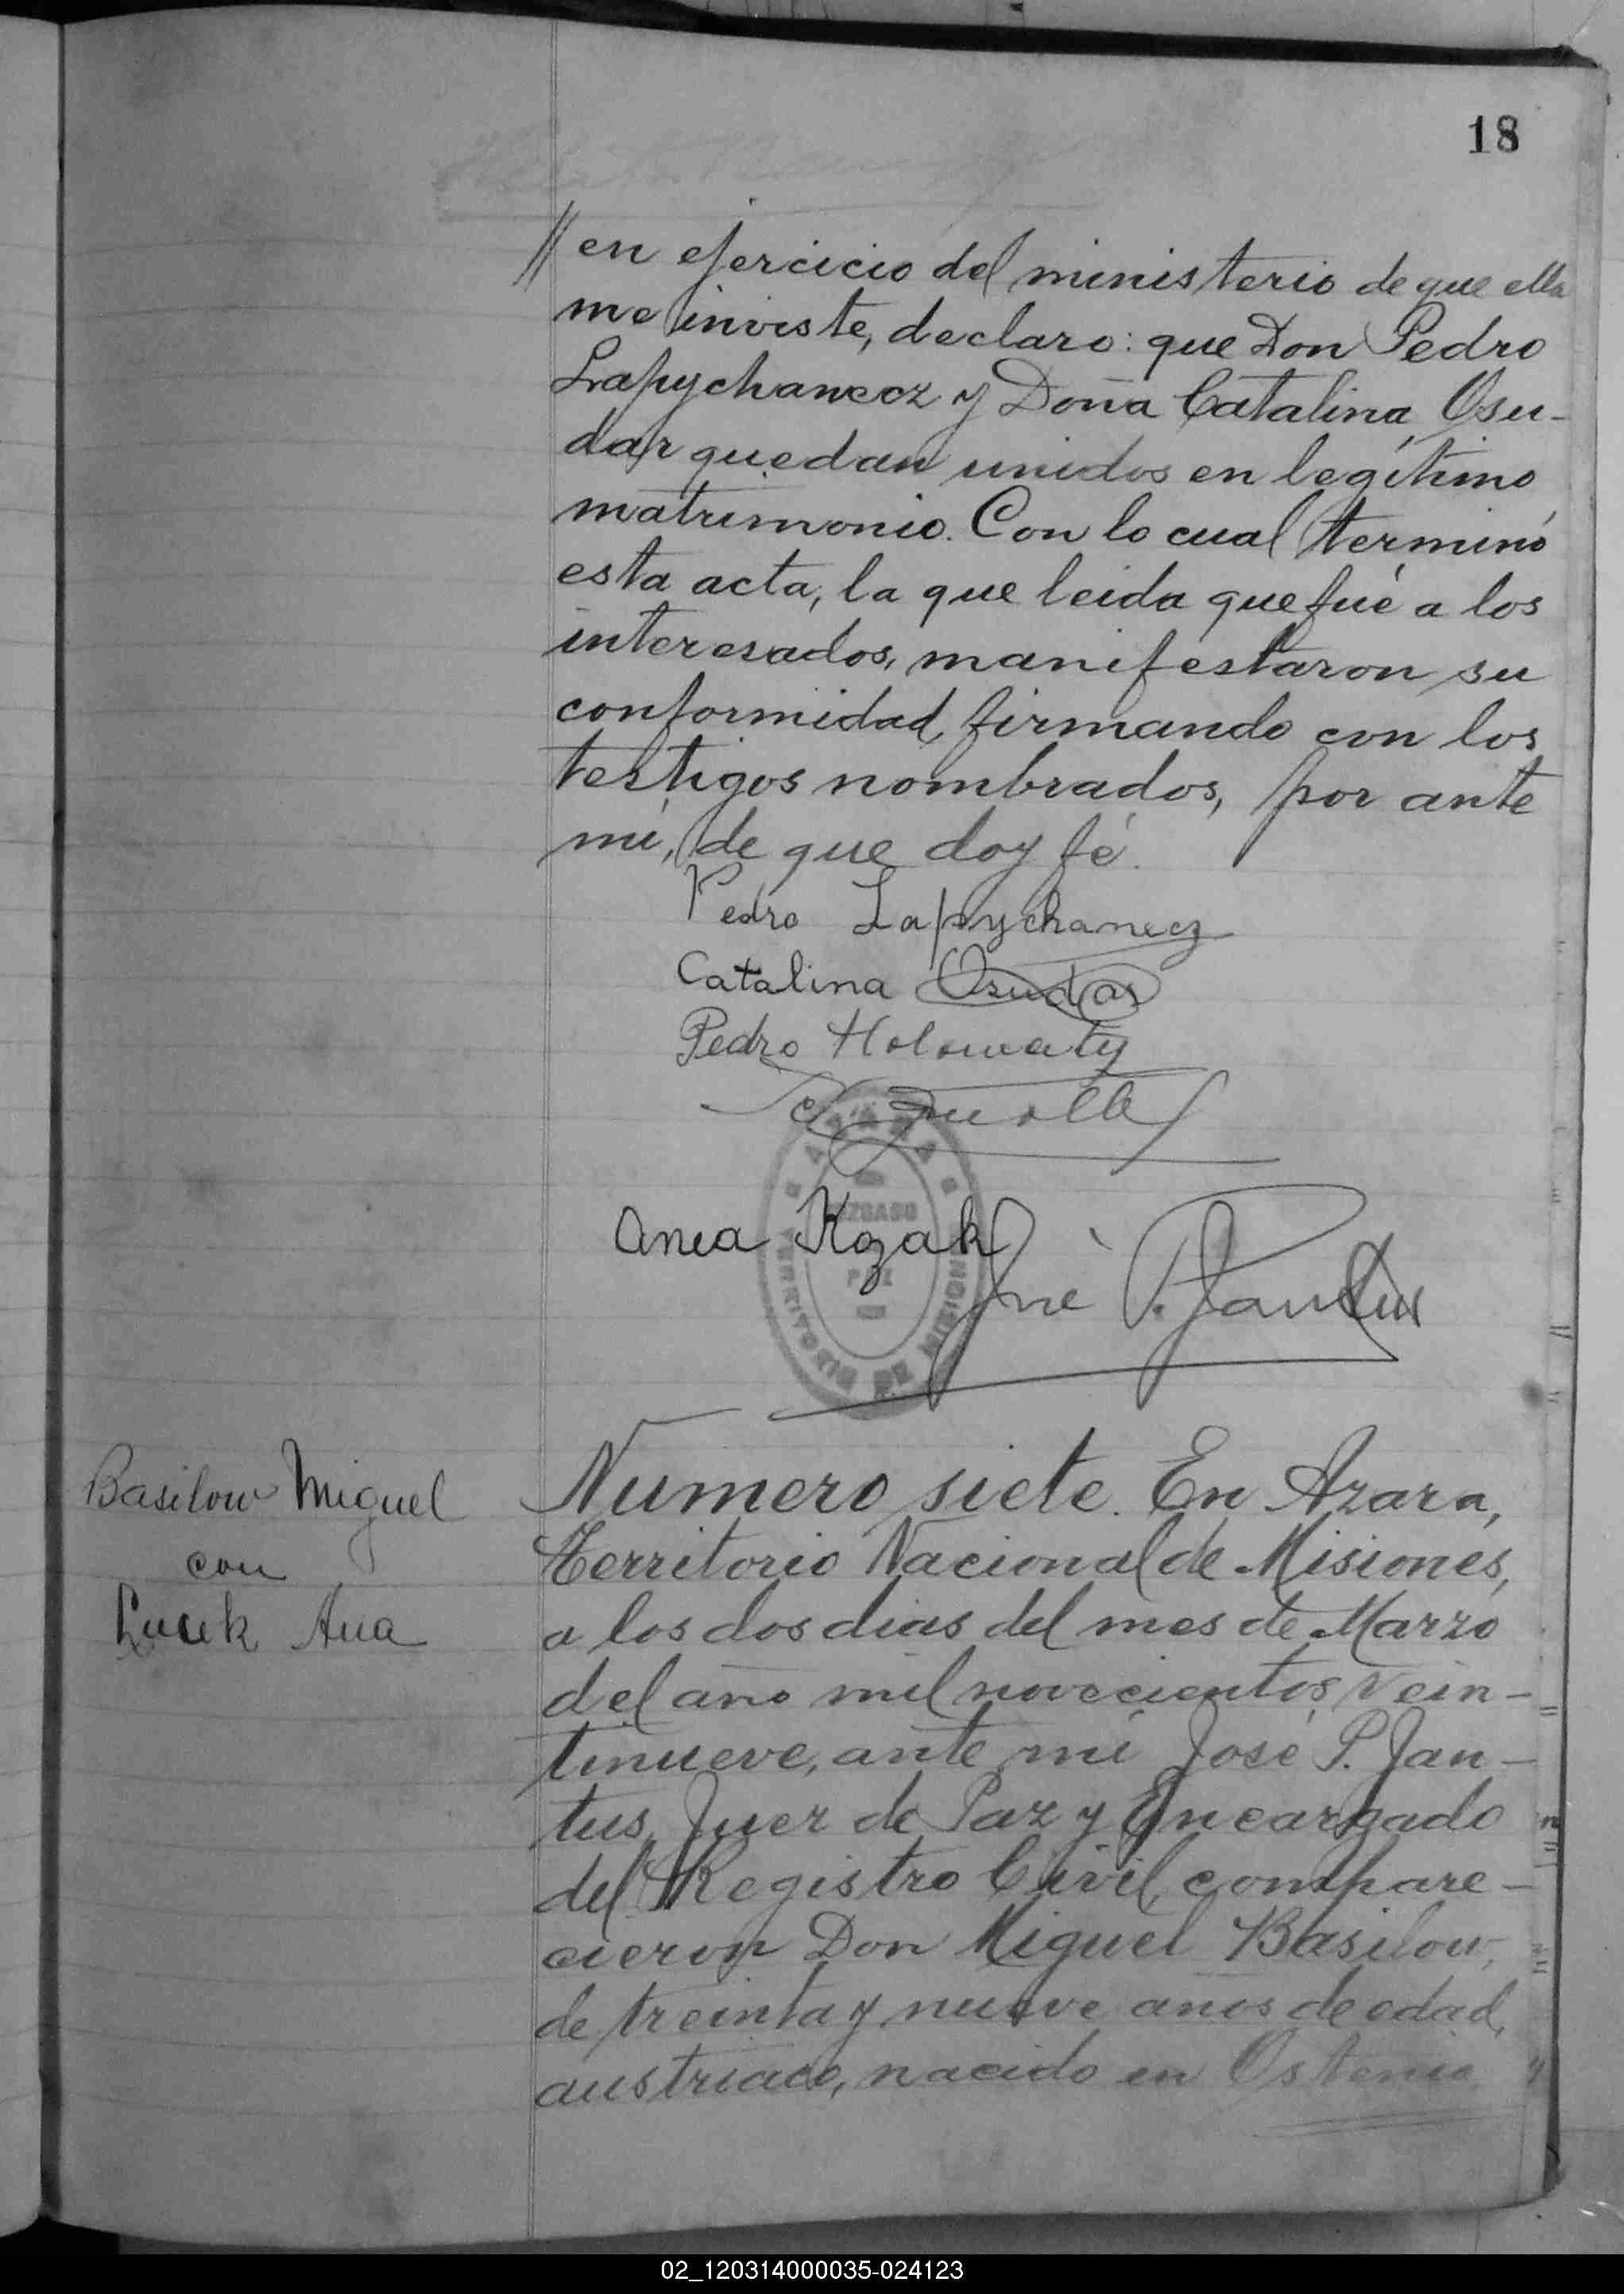 18
// en ejercicio del ministerio de que ella
me inviste, declaro: que Don Pedro
Lapychanecz y Doña Catalina Osu-
dar quedan unidos en legítimo
matrimonio. Con lo cual terminó
esta acta, la que leida que fué a los
interesados, manifestaron su
conformidad, firmando con los
testigos nombrados, por ante
mi, de que doy fé.
Pedro Lapychanecz
Catalina Osudar
Pedro Holowaty
JUZGADO
PAZ
TERRITORIO DE MISIONES
Kozak
José P. Jantus
Basilow Miguel
con
Ana
Numero siete. En Azara,
Territorio Nacional de Misiones,
a los dos dias del mes de Marzo
del año mil novecientos vein-
tinueve, ante mi José P. Jan-
tus, Juez de Paz y Encargado
del Registro Civil, compare-
cieron Don Miguel Basilow,
de treinta y nueve años de edad,
austriaco, nacido en
02_120314000035-024123